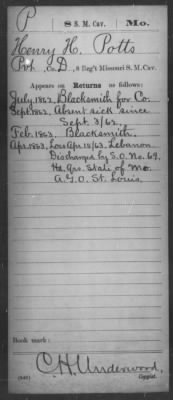 P 8 S. M. Cav. Mo.
Henry H. Potts
Pvt., Co. D, 8 Reg't Missouri S. M. Cav.
Appears on Returns as follows:
July, 1862, Blacksmith for Co.
Sept. 1862, Absent sick since
Sept. 3/62.
Feb. 1863. Blacksmith.
Apr. 1863, Loss Apr. 18/63. Lebanon
Discharged by S.O. No. 69,
Hd. Qrs. State of Mo.
A.G.O. St. Louis
Book mark:
C. H. Underwood,
(546) Copyist.